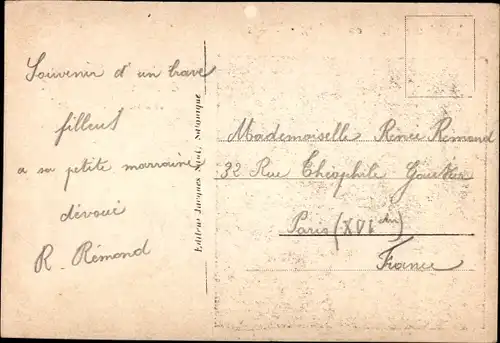 Souvenir d'un brave
filleul
a sa petite marraine
dévoué
R. Rémond
Editeur Jacques Saul, Salonique
Mademoiselle Renée Rémond
32 Rue Théophile Gautier
Paris (XVI
France